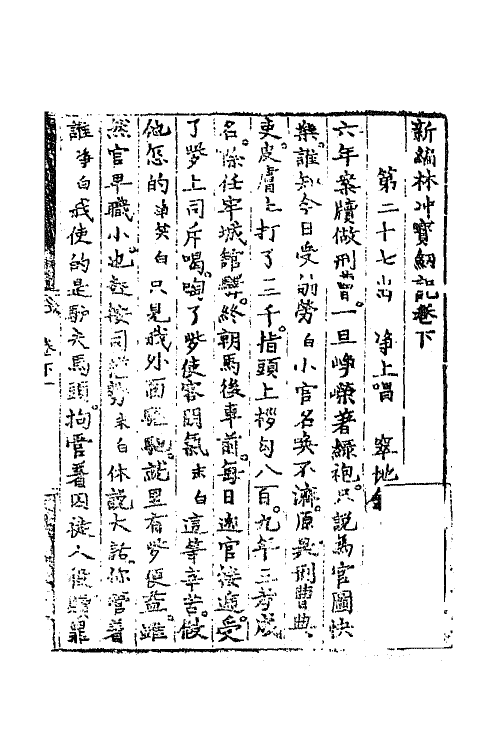 新編林冲寶劍記卷下
第二十七出 净上唱 窣地
六年案牘做刑曹。一旦崢嶸著綠袍。只說為官圖快
樂。誰知今日受劬勞 白 小官名喚不濟。原是刑曹典
吏。皮膚上打了三千。指頭上拶勾八百。九年三考成
名。除任牢城館驛。終朝馬後車前。每日迎官接遞。受
了些上司斥喝。啕了些使客閑氣 末白 這等辛苦。做
他怎的 净笑白 只是我外面驅馳。就里有些便益。雖
然官卑職小。也趕按司 勢 末白 休說大話。你管着
誰 净白 我使的是馿夫馬頭。拘管着囚徒人役 罪
卷下一